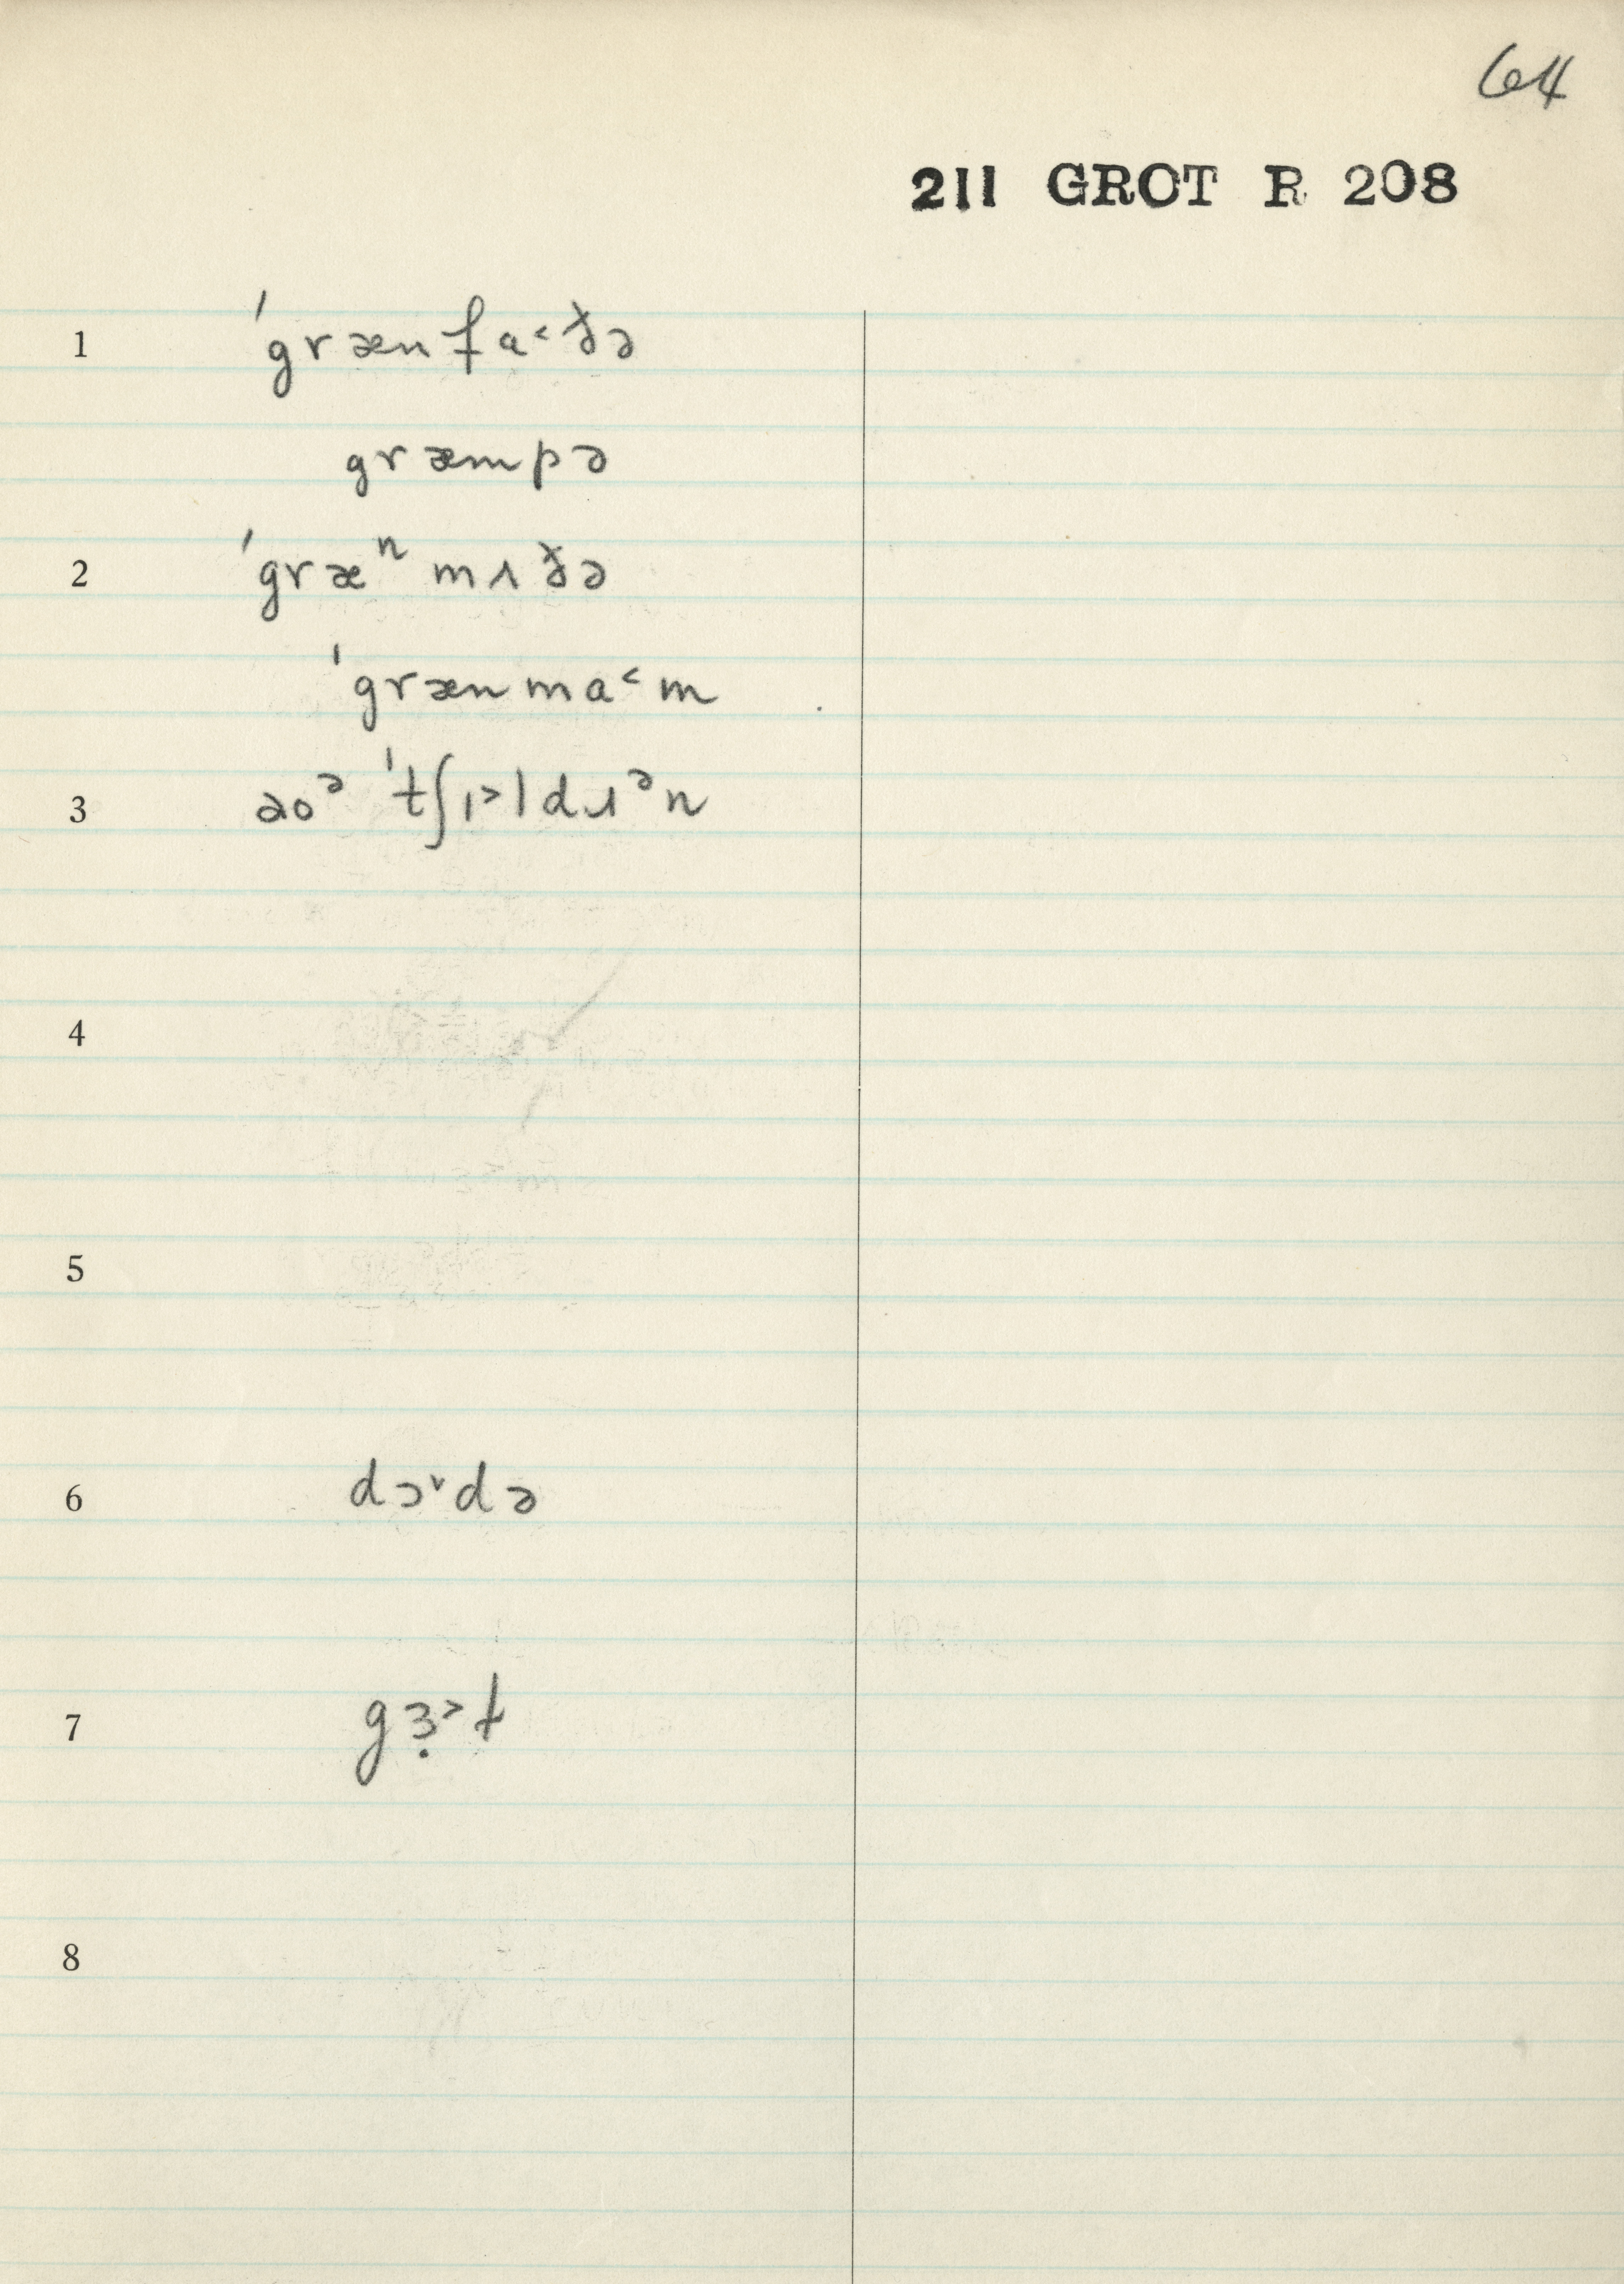 64
211 GROT R 208
1 ˈgrænfa˂ðə
græmpə
2 ˈgræⁿmʌðə
ˈgrænma˂m
3 aoᵊ ˈtʃɪ˃ldɹᵊn
4
5
6 dɔ˅də
7 gɜ̣˃t
8